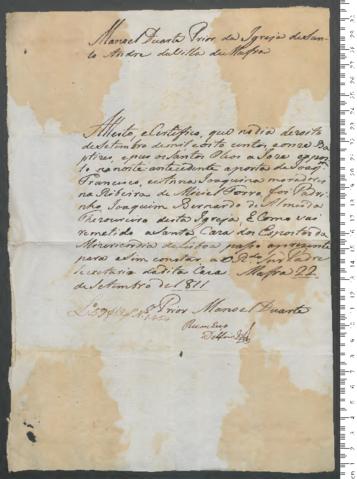 Manoel Duarte Prior da Igreja de San-
to Andre da Villa de Mafra
Attesto, e Certifico, que no dia dezoito
de Setembro de mil e oito centos, e onze Ba-
ptizei, e puz os Santos Oleos a Joze expos-
to na noite antecedente a porta de Joaq.
Francisco, e Anna Joaquina moradores
na Ribeira de foi Padri-
nho Joaquim Bernardo de Almeida
Thezoureiro desta Igreja. E Como vai
remetido a Santa Caza dos Expostos da
Mizericordia de Lisboa passo a prezente
para assim constar ao Padre
Secretario da dita Caza Mafra 22
de Setembro de 1811
O Prior Manoel Duarte